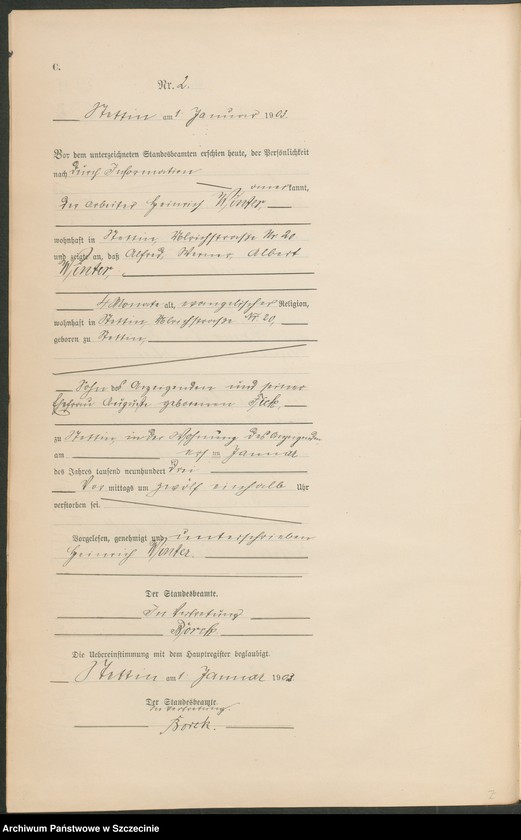 C.
Nr. 2.
Stettin am 1 Januar 1903.
Vor dem unterzeichneten Standesbeamten erschien heute, der Persönlichkeit
nach durch Information
anerkannt,
der Arbeiter Heinrich Winter,
wohnhaft in Stettin, Ulrichstraße Nr 20
und zeigte an, daß Alfred, Werner, Albert
Winter,
4 Monate alt, evangelischer Religion,
wohnhaft in Stettin Ulrichstraße Nr 20,
geboren zu Stettin,
Sohn des Anzeigenden und seiner
Ehefrau Auguste geborenen
zu Stettin in der Wohnung des Anzeigenden
am ersten Januar
des Jahres tausend neunhundert drei
Vor mittags um zwölf einhalb Uhr
verstorben sei.
Vorgelesen, genehmigt und unterschrieben
Heinrich Winter.
Der Standesbeamte.
In Vertretung
Borck.
Die Uebereinstimmung mit dem Hauptregister beglaubigt.
Stettin am 1 Januar 1903
Der Standesbeamte.
In Vertretung.
Borck.
Archiwum Państwowe w Szczecinie